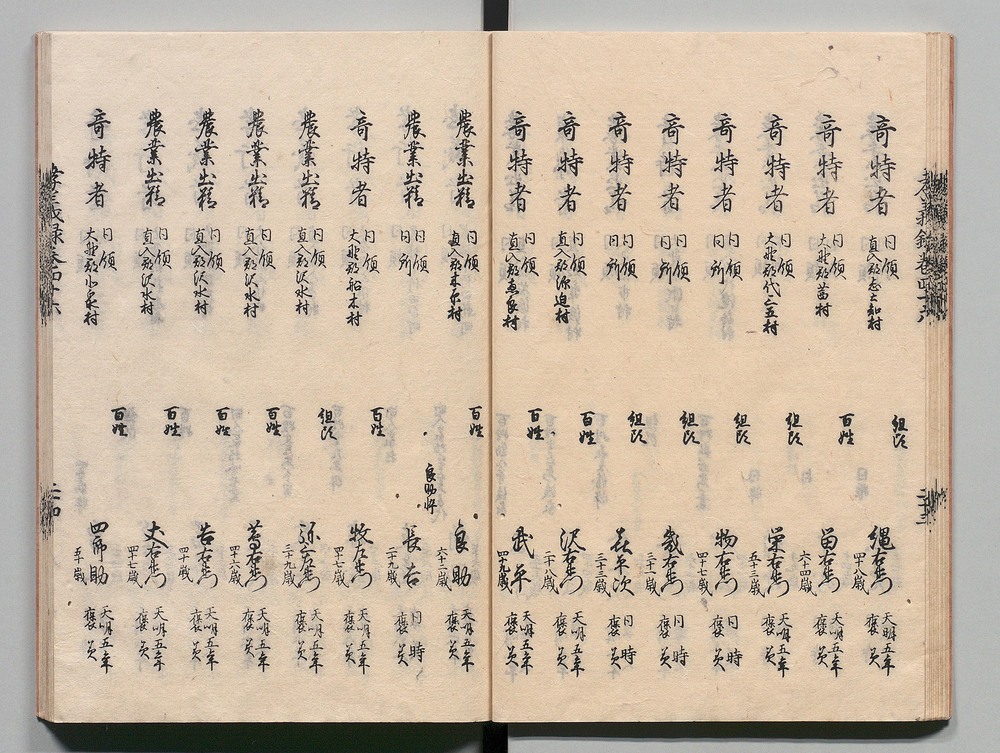 孝義録巻四十六
奇特者 同領 直入郡志土知村 組頭 縄右衛門 四十八歳 天明五年 褒美
奇特者 同領 大野郡苗村 百姓 留右衛門 六十四歳 天明五年 褒美
奇特者 同領 大野郡代三五村 組頭 栄右衛門 五十三歳 天明五年 褒美
奇特者 同領 同所 組頭 物右衛門 四十七歳 同時 褒美
奇特者 同領 同所 組頭 幾右衛門 三十一歳 同時 褒美
奇特者 同領 同所 組頭 喜平次 三十三歳 同時 褒美
奇特者 同領 直入郡源迫村 百姓 沢右衛門 二十八歳 天明五年 褒美
奇特者 同領 直入郡恵良村 百姓 武平 四十九歳 天明五年 褒美
農業出精 同領 直入郡米尓村 百姓 良助 六十二歳 天明五年 褒美
農業出精 同領 同所 良助忰 長吉 二十九歳 同時 褒美
奇特者 同領 大野郡船木村 百姓 牧右衛門 四十七歳 天明五年 褒美
農業出精 同領 直入郡沢水村 組頭 弥右衛門 三十九歳 天明五年 褒美
農業出精 同領 直入郡沢水村 百姓 蔦右衛門 四十六歳 天明五年 褒美
農業出精 同領 直入郡沢水村 百姓 吉右衛門 四十一歳 天明五年 褒美
農業出精 同領 直入郡沢水村 百姓 丈右衛門 四十七歳 天明五年 褒美
奇特者 同領 大野郡小泉村 百姓 四郎助 五十歳 天明五年 褒美
孝義録巻四十六 二十四